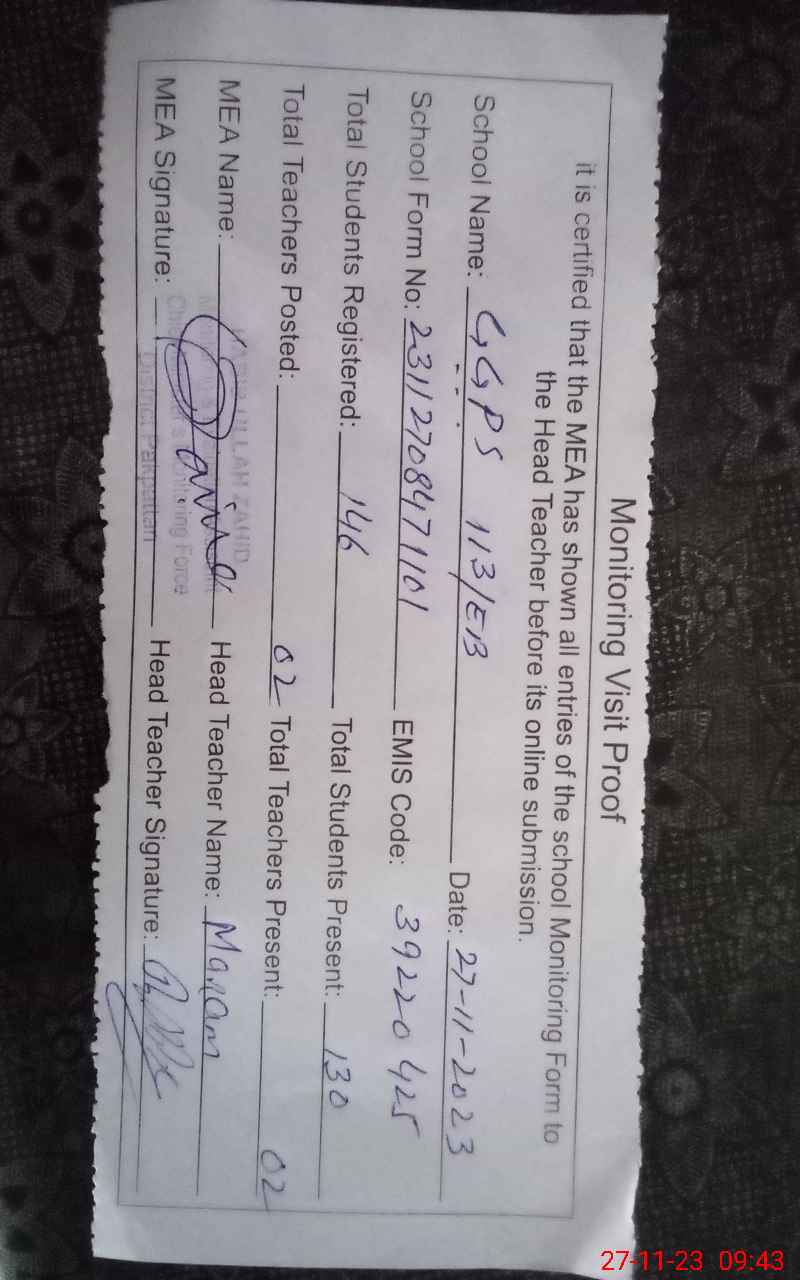 Monitoring Visit Proof
it is certified that the MEA has shown all entries of the school Monitoring Form to
the Head Teacher before its online submission.
School Name: GGPS 113/EB Date: 27-11-2023
School Form No: 2311270847 1101 EMIS Code: 39220425
Total Students Registered: 146 Total Students Present: 130
Total Teachers Posted: 02 Total Teachers Present: 02
MEA Name: Head Teacher Name: Maram
MEA Signature: Head Teacher Signature:
ULLAH ZAHID
Monitoring Force
District Pakpattan
27-11-23 09:43